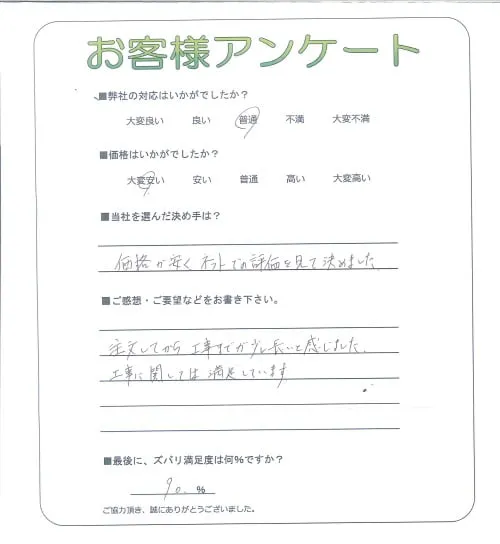 お客様アンケート
■弊社の対応はいかがでしたか？
大変良い 良い 普通 不満 大変不満
■価格はいかがでしたか？
大変安い 安い 普通 高い 大変高い
■当社を選んだ決め手は？
価格が安くネットでの評価を見て決めました。
■ご感想・ご要望などをお書き下さい。
注文してから工事までが少し長いと感じました。
工事に関しては満足しています
■最後に、ズバリ満足度は何％ですか？
90. ％
ご協力頂き、誠にありがとうございました。